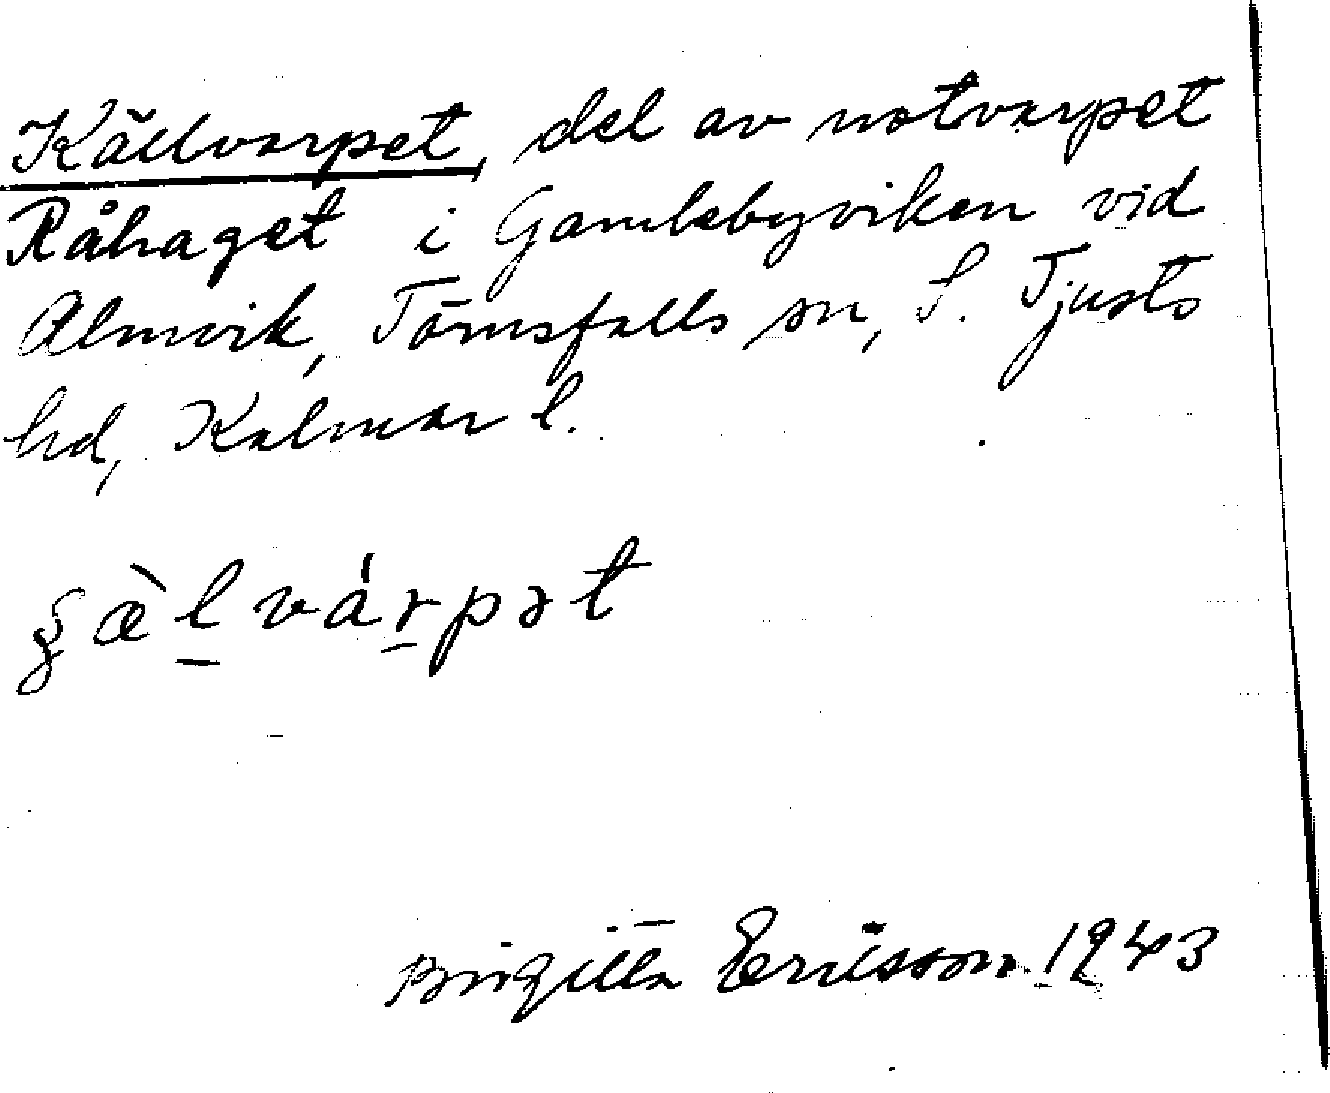 Källvarpet, del av notvarpet
Råhaget i Gamlebyviken vid
Almvik, Törnsfalls sn, S. Tjusts
hd, Kalmar l.
ʂæ̀l̲vár̲pət
Birgitta Ericsson 1943